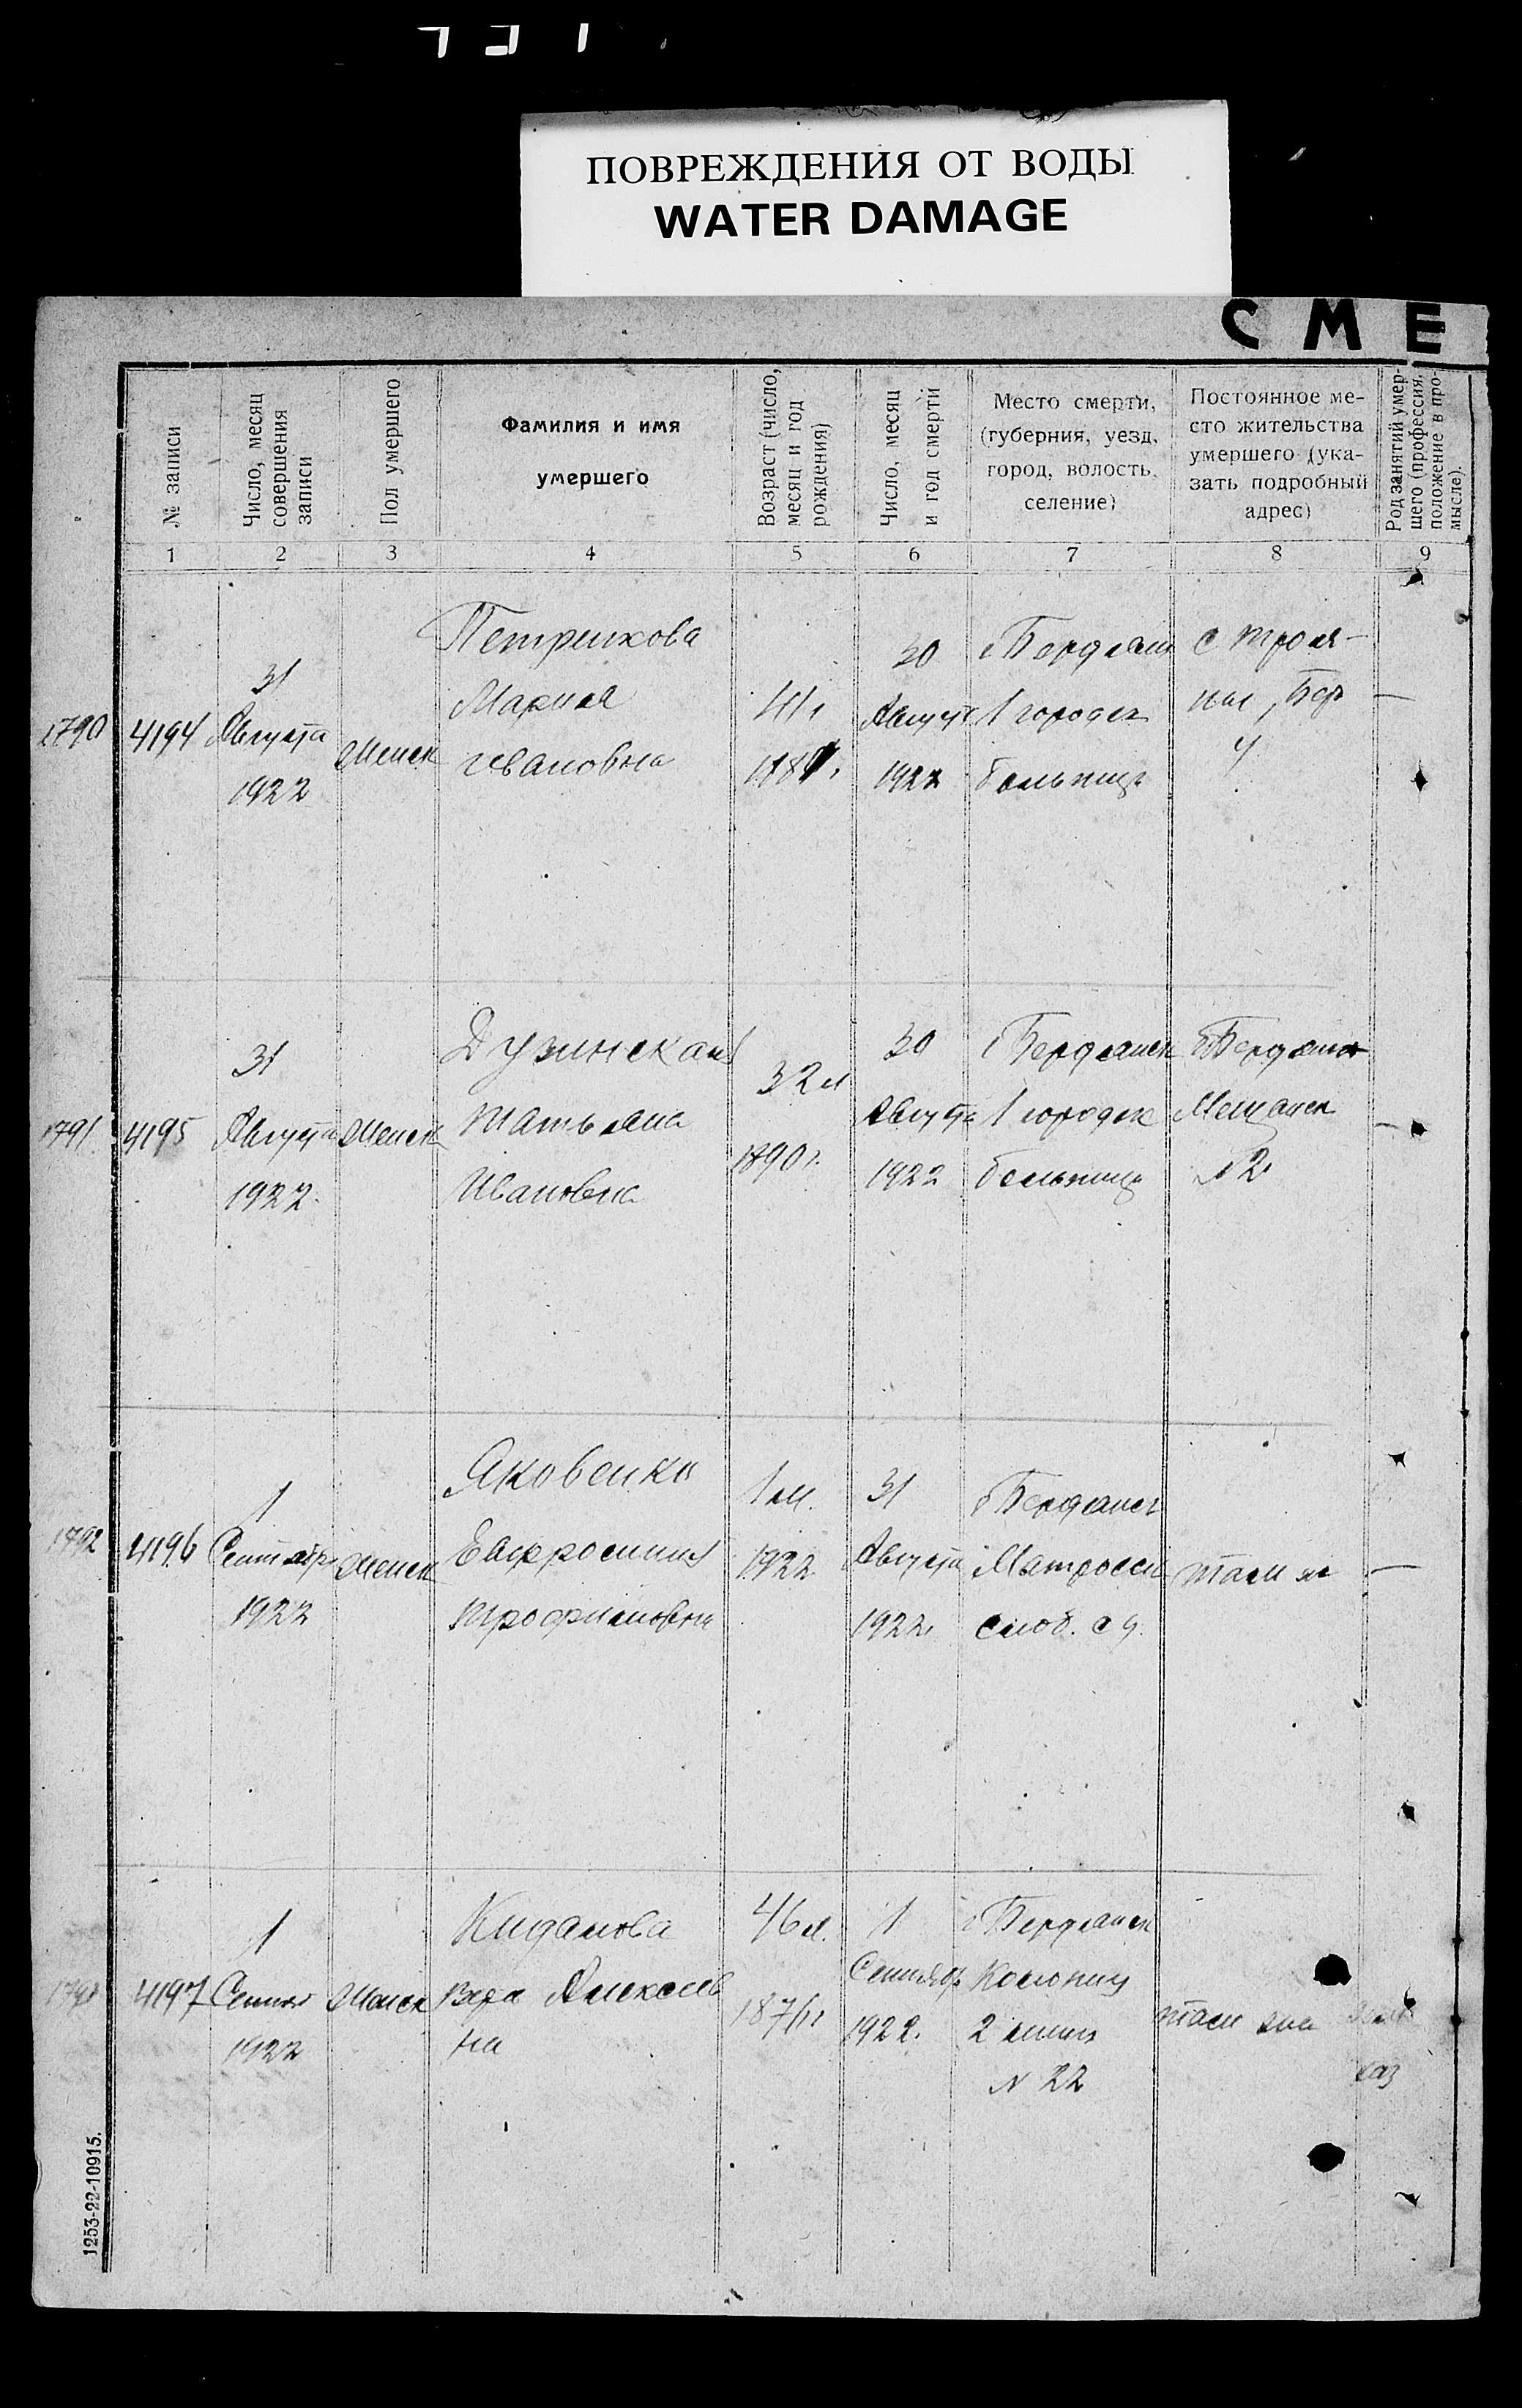 ПОВРЕЖДЕНИЯ ОТ ВОДЫ
WATER DAMAGE
СМЕ
№ записи
Число, месяц
совершения
записи
Пол умершего
Фамилия и имя
умершего
Возраст (число,
месяц и год
рождения)
Число, месяц
и год смерти
Место смерти,
(губерния, уезд,
город, волость,
селение)
Постоянное ме-
сто жительства
умершего (ука-
зать подробный
адрес)
Род занятий умер-
шего (профессия,
положение в про-
мысле).
1 2 3 4 5 6 7 8 9
1790 4194
31
Августа
1922
Женск
Петренкова
Мария
Ивановна
30
Августа
1922
г Бердянск
1 городск
больница
с Троя-
ны, Бер
у
—
1791 4195
31
Августа
1922
Женск
Дузинская
Татьяна
Ивановна
32 л
1890 г.
30
Августа
1922
г Бердянск
1 городск
больница
г Бердянск
Мещанск
№ 2
—
1792 4196
1
Сентябр
1922
Женск
Яковенко
Евфросиния
Трофимовна
1 м.
1922
31
Августа
1922
г Бердянск
Матросск
слоб. с д.
там же
—
4197
1
Сентя
1922
Женск
Киданова
Вера Алексеев
на
46 л.
1876 г
1
Сентябр
1922.
г Бердянск
Колония
2 линия
№ 22
там же
1253-22-10915.